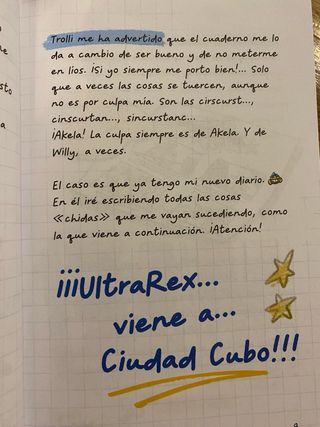 Trolli me ha advertido que el cuaderno me lo
da a cambio de ser bueno y de no meterme
en líos. ¡Si yo siempre me porto bien!... Solo
que a veces las cosas se tuercen, aunque
no es por culpa mía. Son las cirscurst...,
cinscurtan..., sincurstanc...
¡Akela! La culpa siempre es de Akela. Y de
Willy, a veces.
El caso es que ya tengo mi nuevo diario.
En él iré escribiendo todas las cosas
«chidas» que me vayan sucediendo, como
la que viene a continuación. ¡Atención!
¡¡¡UltraRex...
viene a...
Ciudad Cubo!!!